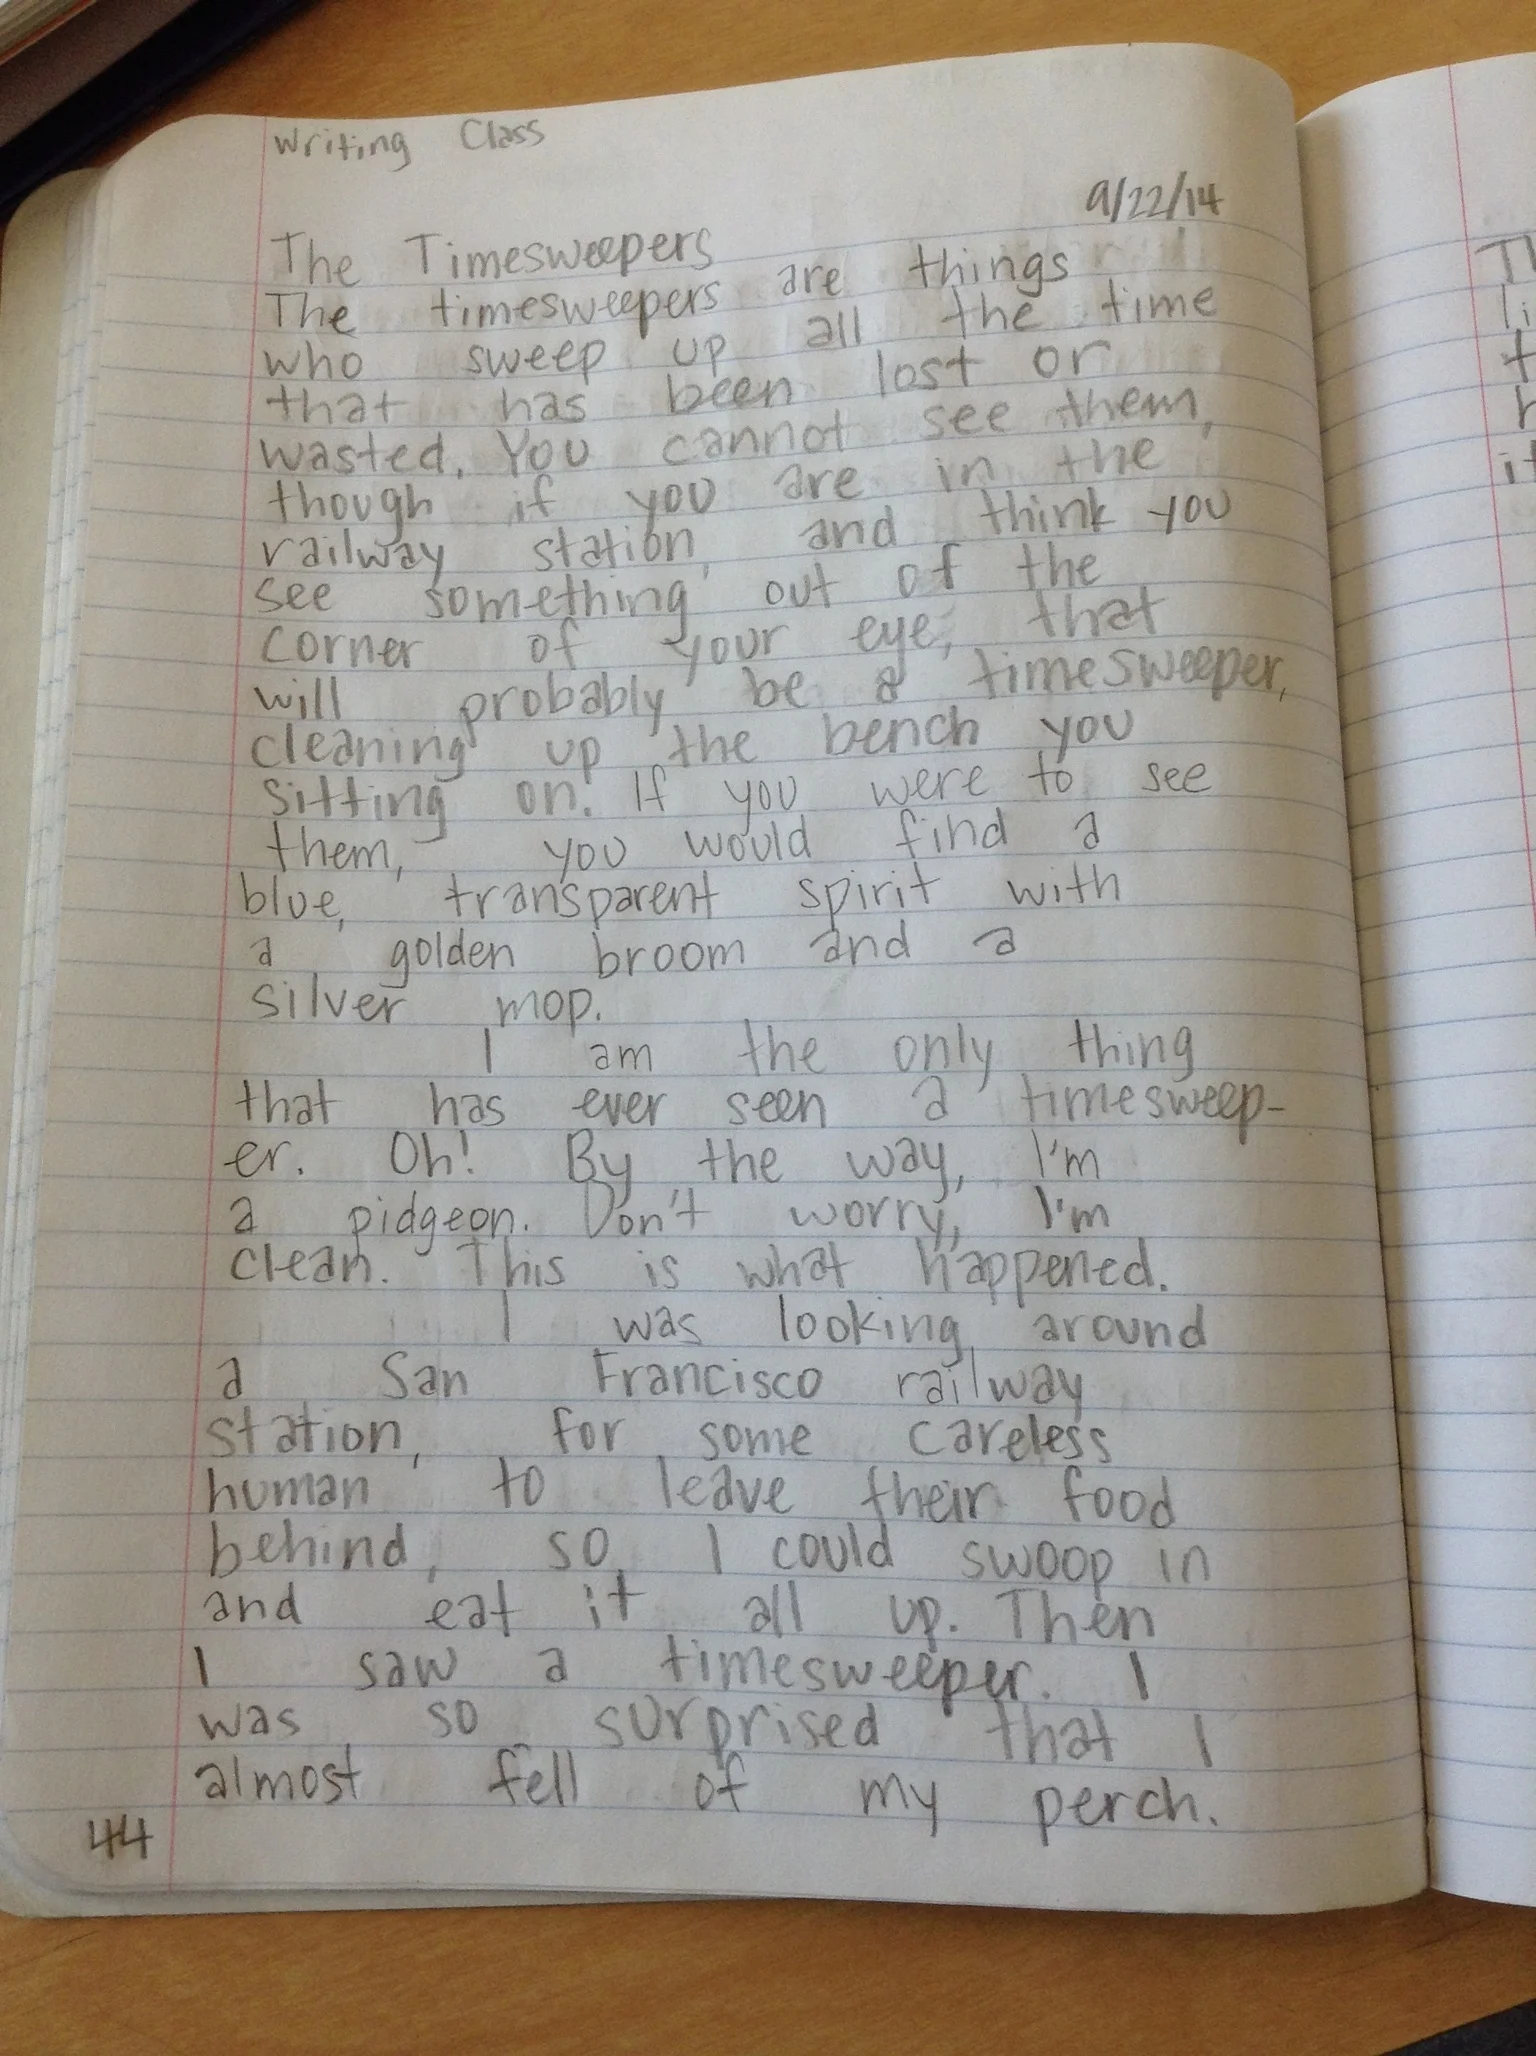 Writing Class
9/22/14
The Timesweepers
The timesweepers are things
who sweep up all the time
that has been lost or
wasted. You cannot see them,
though if you are in the
railway station, and think you
see something out of the
corner of your eye, that
will probably be a timesweeper,
cleaning up the bench you
sitting on. If you were to see
them, you would find a
blue, transparent spirit with
a golden broom and a
silver mop.
I am the only thing
that has ever seen a timesweep-
er. Oh! By the way, I'm
a pidgeon. Don't worry, I'm
clean. This is what happened.
I was looking around
a San Francisco railway
station, for some careless
human to leave their food
behind, so I could swoop in
and eat it all up. Then
I saw a timesweeper. I
was so surprised that I
almost fell of my perch.
44